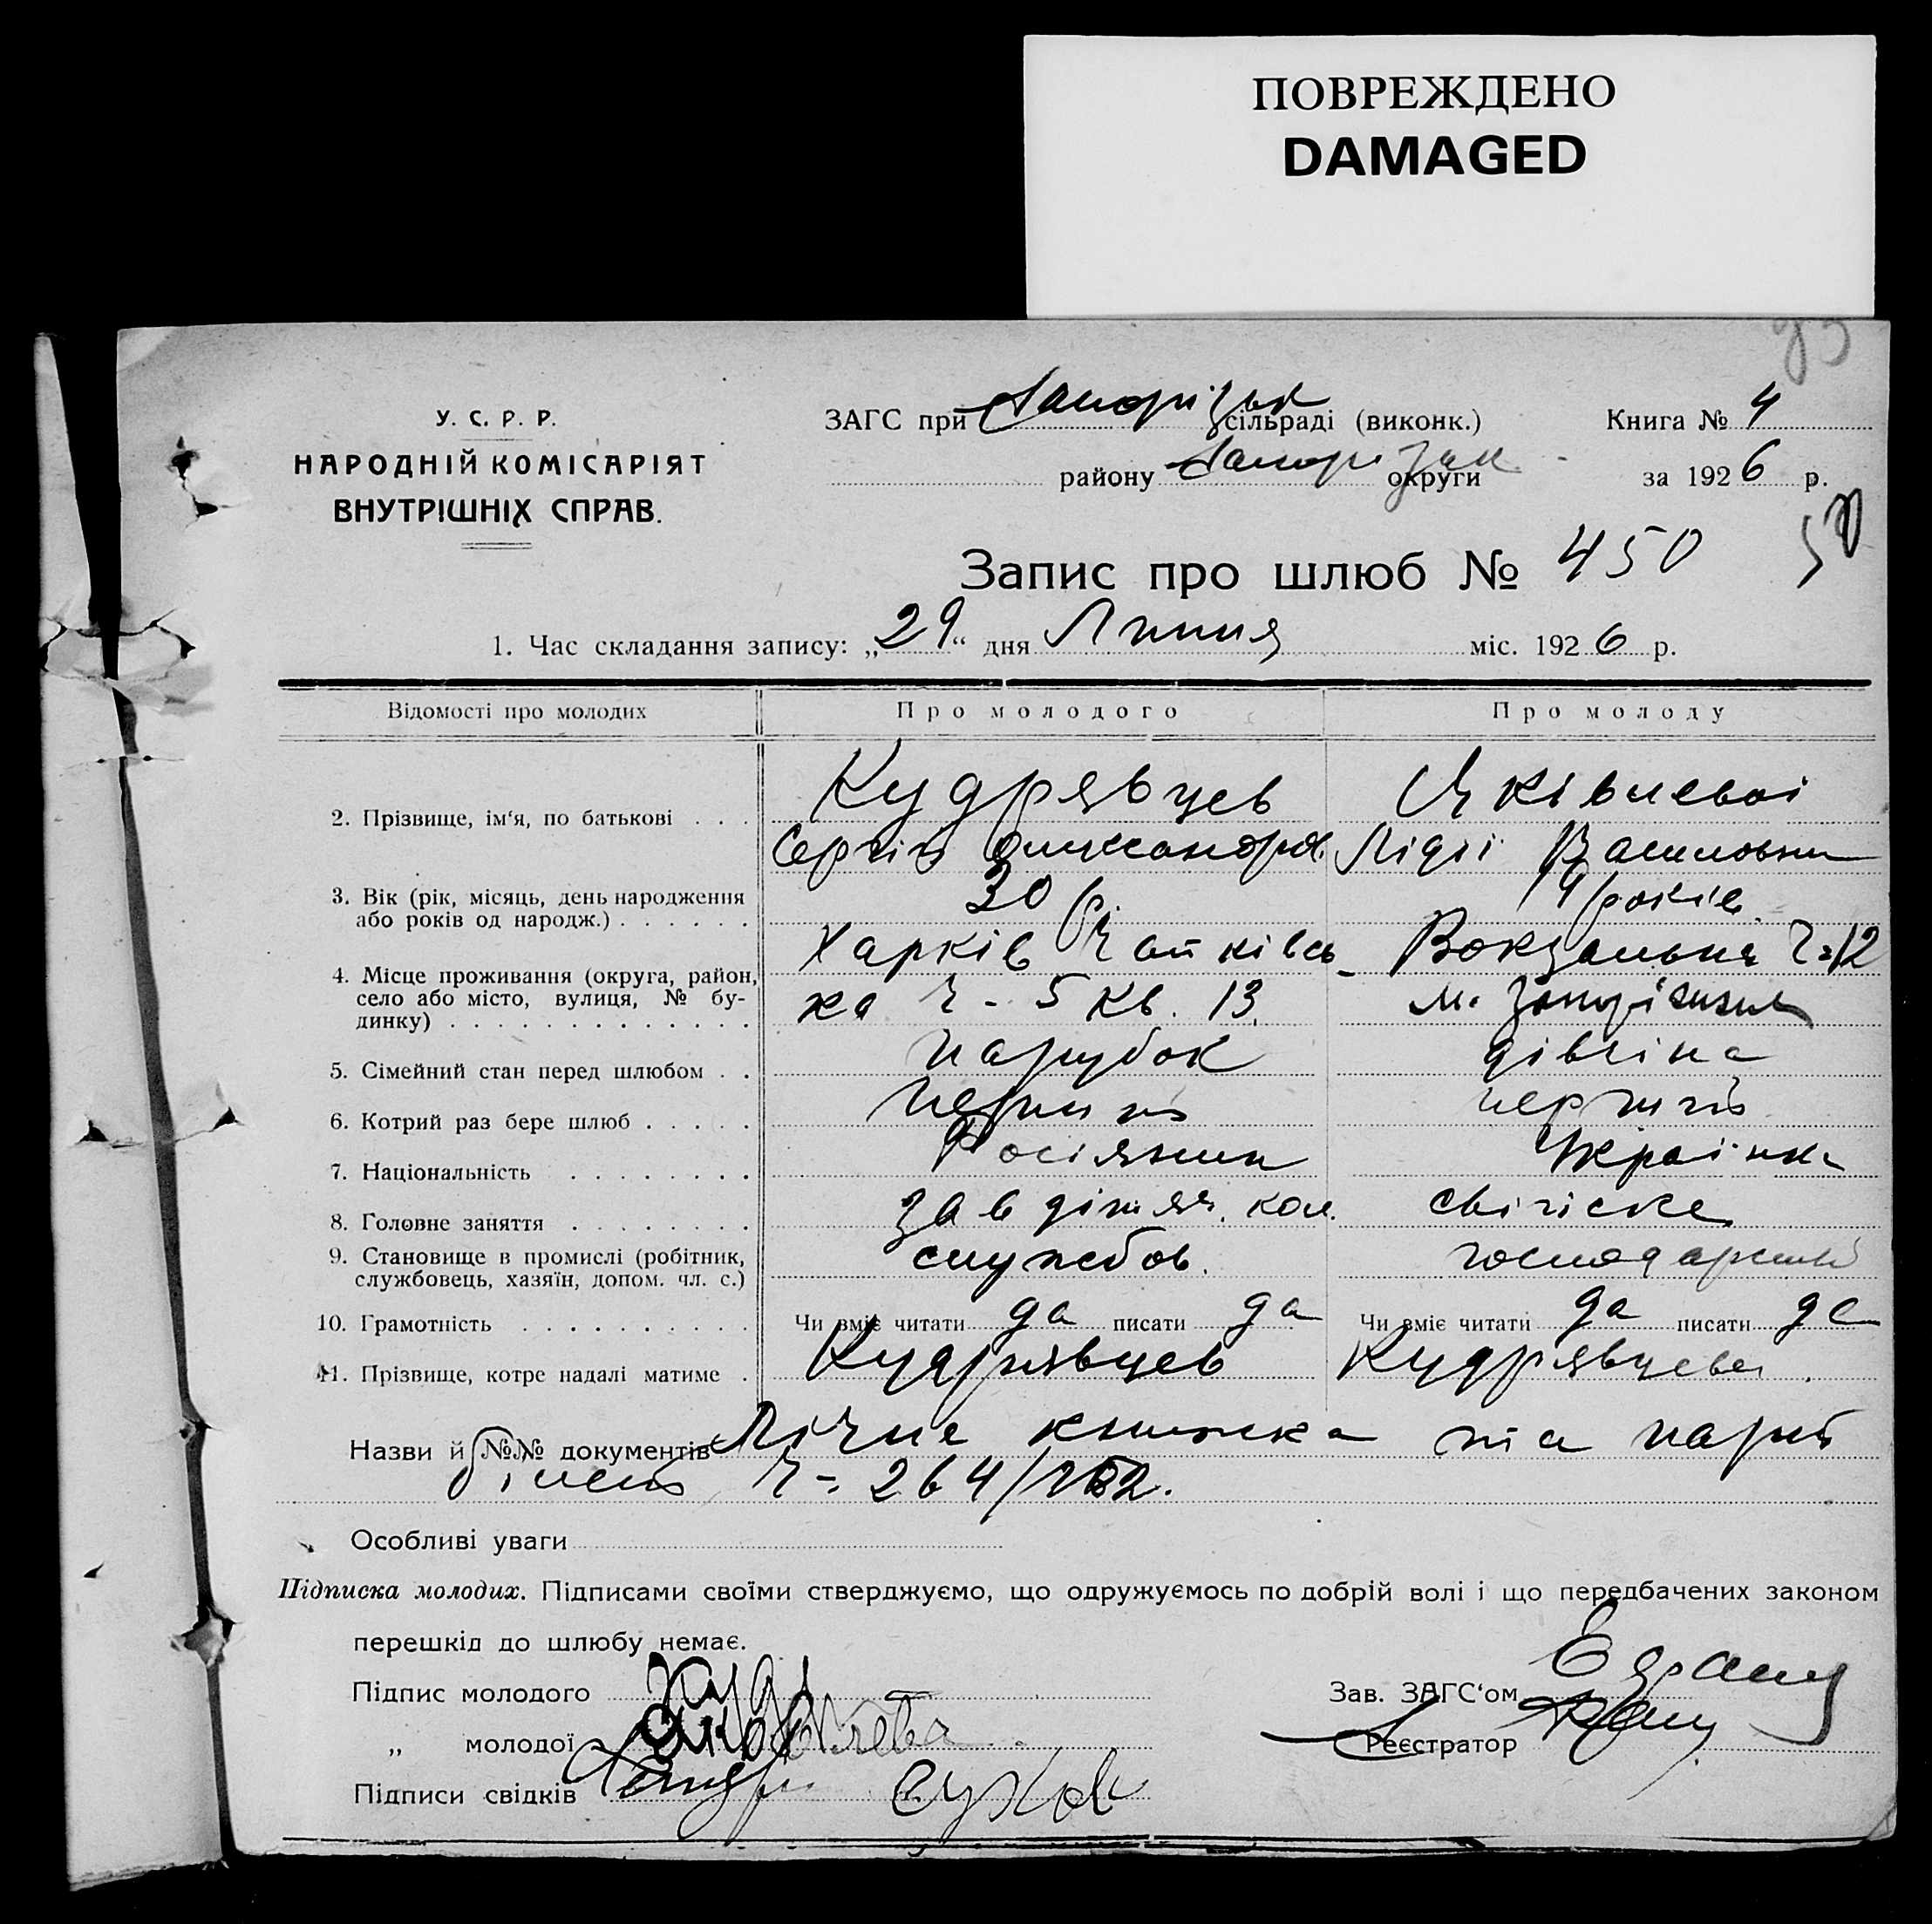 ПОВРЕЖДЕНО
DAMAGED
У. С. Р. Р.
НАРОДНІЙ КОМІСАРІЯТ
ВНУТРІШНІХ СПРАВ.
ЗАГС при Запорізьк сільраді (виконк.) Книга № 4
району Запорізьк округи за 1926 р.
50
Запис про шлюб № 450
1. Час складання запису: „29“ дня Липня міс. 1926 р.
Відомості про молодих Про молодого Про молоду
2. Прізвище, ім‘я, по батькові . . . Кудрявцев Яківлевоі
Сергій Олександров. Лідіі
3. Вік (рік, місяць, день народження
або років од народж.) . . . . . . 30 р. 19 років
4. Місце проживання (округа, район,
село або місто, вулиця, № бу-
динку) . . . . . . . . . . . . . Харків Вокзальна ч=12
ка ч - 5 кв. 13. м. Запоріжжя
5. Сімейний стан перед шлюбом . . парубок дівчіна
6. Котрий раз бере шлюб . . . . . перший перший
7. Національність . . . . . . . . Росіянин Украінка
8. Головне заняття . . . . . . . . зав дітяч. кол.
9. Становище в промислі (робітник,
службовець, хазяїн, допом. чл. с.) службов.
10. Грамотність . . . . . . . . . . Чи вміє читати да писати да Чи вміє читати да писати да
11. Прізвище, котре надалі матиме . Кудрявцев Кудрявцева
Назви й №№ документів Лічна книжка та парт
білет ч=264/
Особливі уваги
Підписка молодих. Підписами своїми стверджуємо, що одружуємось по добрій волі і що передбачених законом
перешкід до шлюбу немає.
Підпис молодого
Зав. ЗАГС‘ом
„ молодої
Реєстратор
Підписи свідків